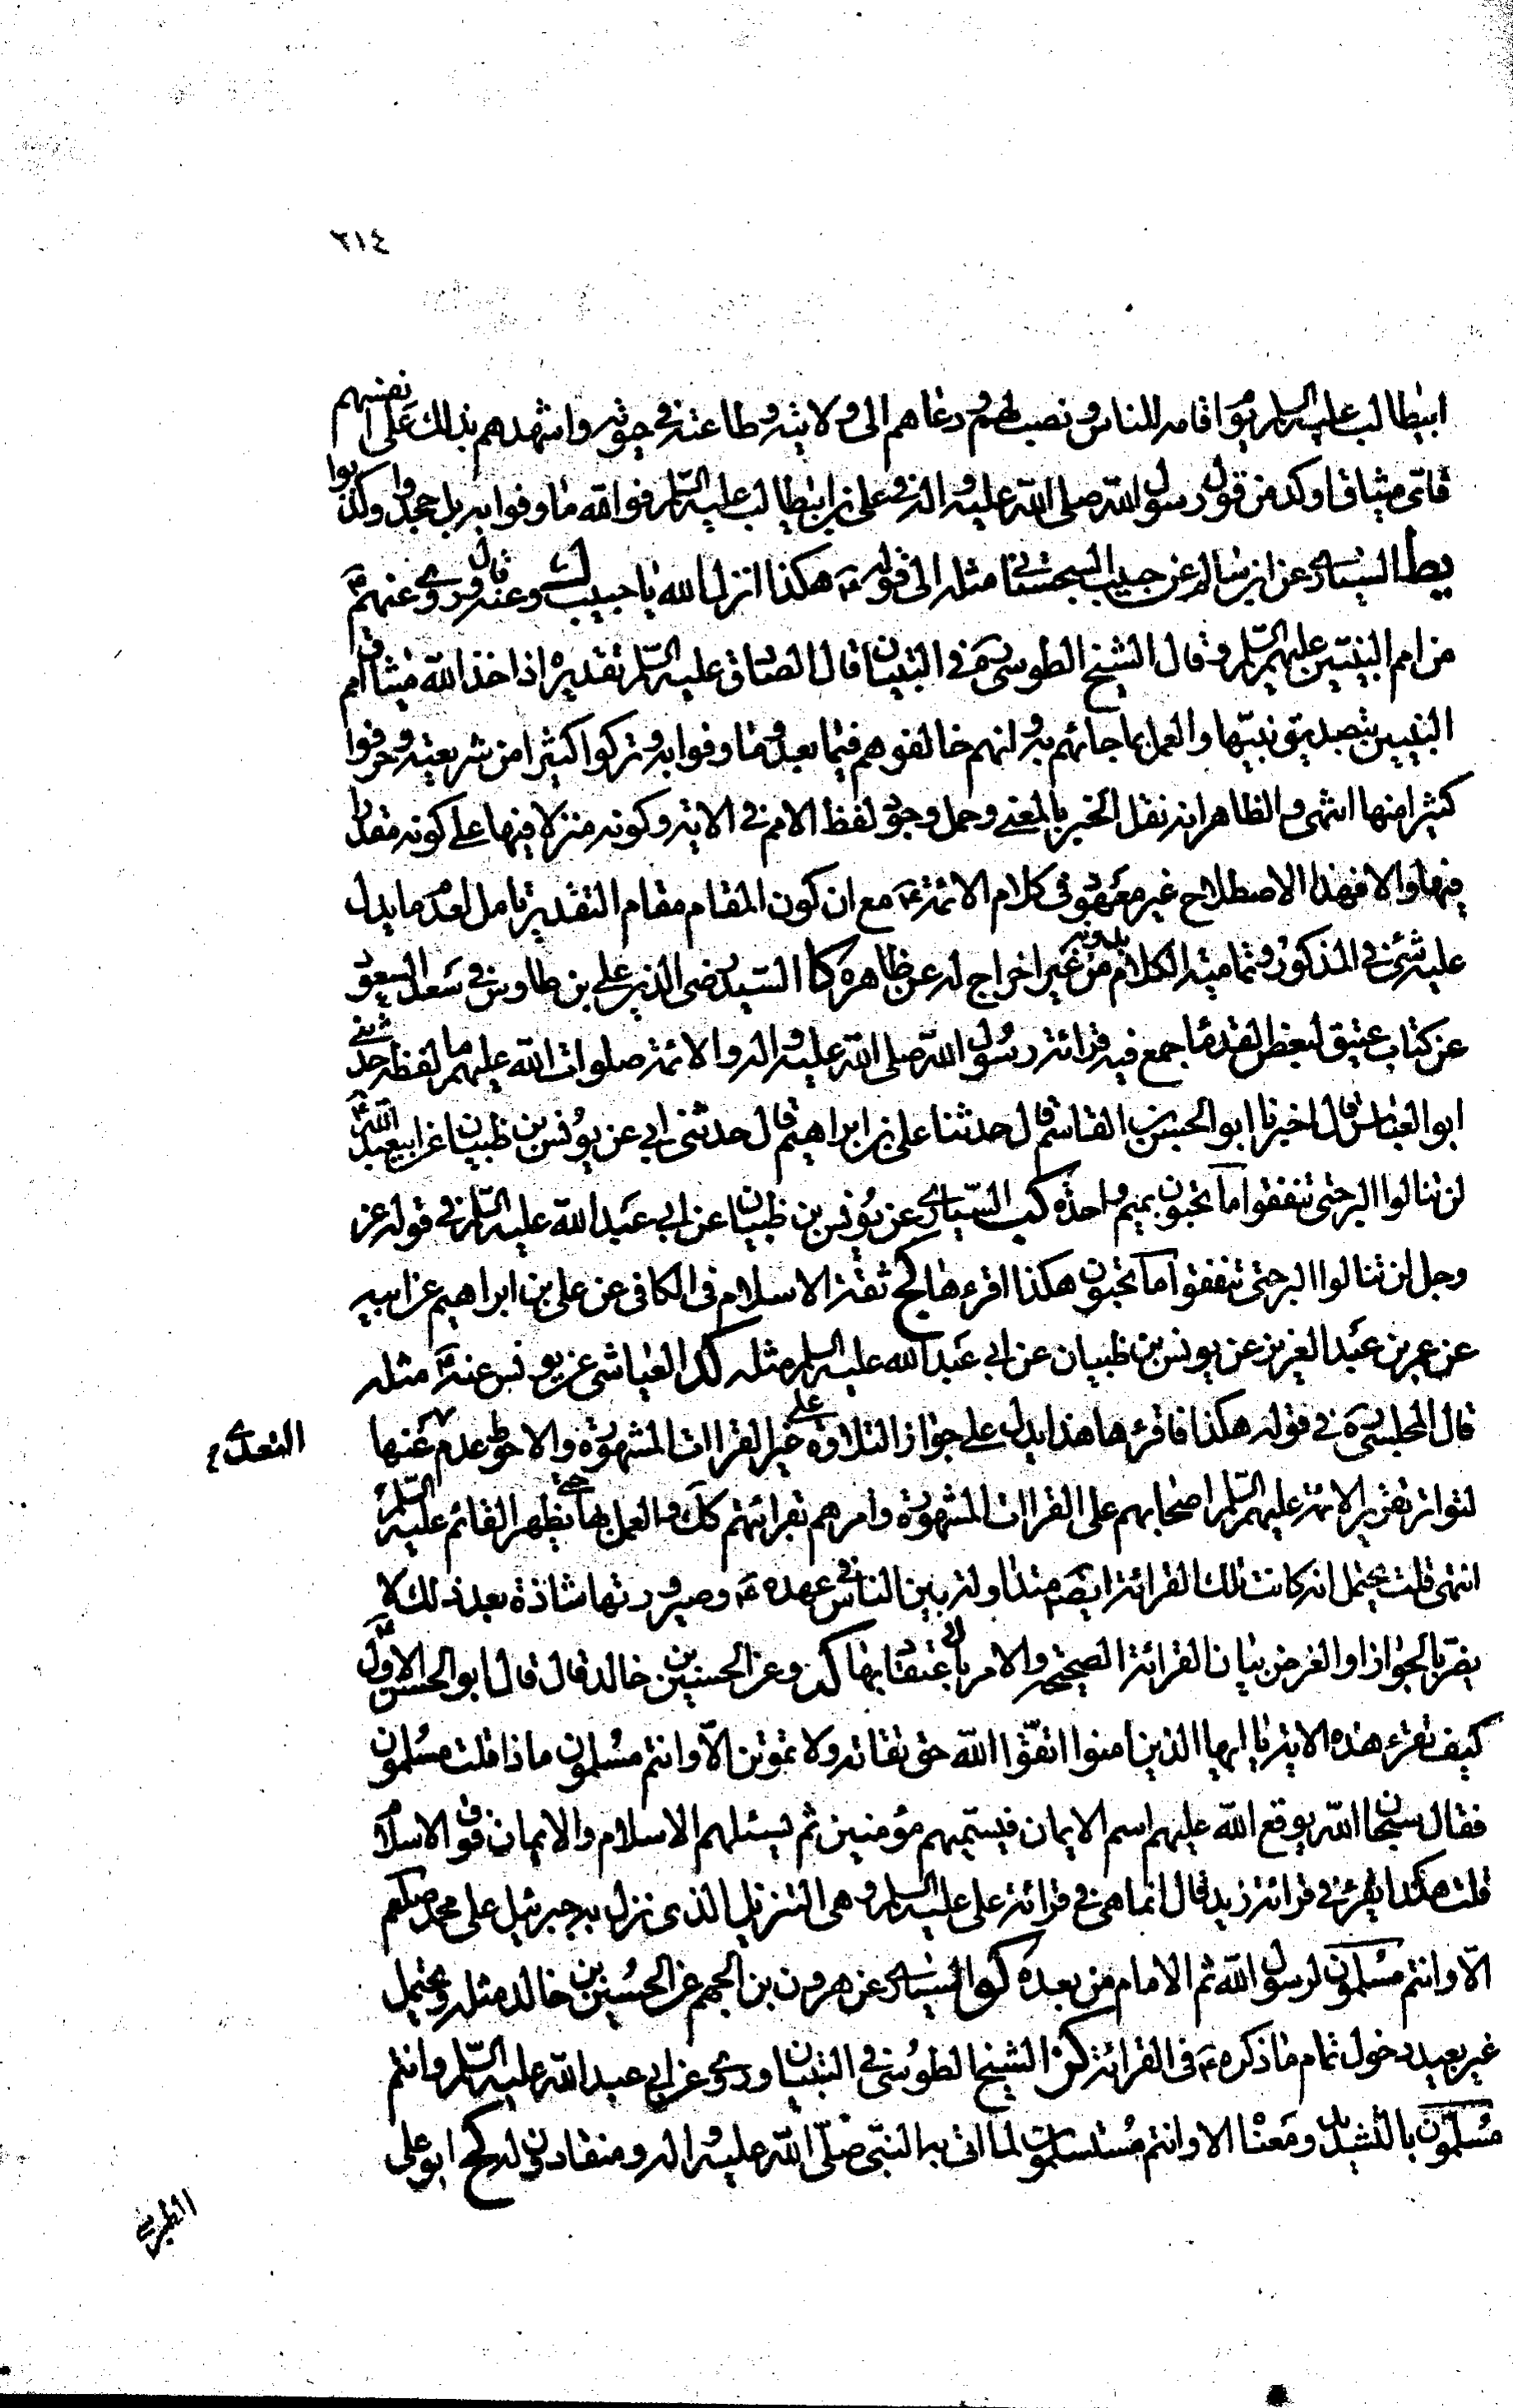 ٢١٤
ابيطالب عليه السلام يوم اقامه للناس ونصبه لهم ودعاهم الى ولايته وطاعته في حيوته واشهدهم بذلك على انفسهم
فاتى ميثاق اوكد من قول رسول الله صلى الله عليه وآله في علي بن ابيطالب عليه السلام فوالله ما وفوا به بل جحدوا وكذبوا
يط السياري عن ابن سالم عن حبيب السجستاني مثله الى قوله ع هكذا انزلها الله يا حبيب ك وعنه قال وروى عنهم ع
من امم النبيين عليهم السلام وقال الشيخ الطوسي ره في التبيان قال الصادق عليه السلام تقديره اذ اخذ الله ميثاق امم
النبيين بتصديق نبيها والعمل بما جائهم به وانهم خالفوهم فيما بعد وما وفوا به وتركوا كثيرا من شريعته وحرفوا
كثيرا منها انتهى والظاهر انه نقل الخبر بالمعنى وحمل وجود لفظ الامم في الاية وكونه منزلا فيها على كونه مقدرا
فيها والا فهذا الاصطلاح غير معهود في كلام الائمة ع مع ان كون المقام مقام التقدير تامل لعدم ما يدل
عليه شئ في المذكور وتمامية الكلام بدونه من غير اخراج له عن ظاهره كا السيد رضي الدين علي بن طاوس في سعد السعود
عن كتاب عتيق لبعض القدماء جمع فيه قرائة رسول الله صلى الله عليه وآله والائمة صلوات الله عليهم ما لفظه حدثني
ابو العباس قال اخبرنا ابو الحسن بن القاسم قال حدثنا علي بن ابراهيم قال حدثني ابي عن يونس بن ظبيان عن ابيعبد الله ع
لن تنالوا البر حتى تنفقوا ما تحبون بميم واحدة كب السياري عن يونس بن ظبيان عن ابي عبد الله عليه السلام في قوله عز
وجل لن تنالوا البر حتى تنفقوا ما تحبون هكذا اقرءها كج ثقة الاسلام في الكافي عن علي بن ابراهيم عن ابيه
عن عمر بن عبد العزيز عن يونس بن ظبيان عن ابي عبد الله عليه السلام مثله كد العياشي عن يونس عنه ع مثله
قال المجلسي ره في قوله هكذا فاقرءها هذا يدل على جواز التلاوة على غير القراات المشهورة والاحوط عدم التعدي عنها
لتواتر تقرير الائمة عليهم السلام اصحابهم على القراات المشهورة وامرهم بقرائتهم كك والعمل بها حتى يظهر القائم عليه السلام
انتهى قلت يحتمل انه كانت تلك القرائة ايضا متداولة بين الناس في عهده ع وصيرورتها شاذة بعد ذلك لا
يضر بالجواز او الغرض بيان القرائة الصحيحة والامر باعتقادها كه وعن الحسين بن خالد قال قال ابو الحسن الاول ع
كيف تقرء هذه الاية يا ايها الذين امنوا اتقوا الله حق تقاته ولا تموتن الا وانتم مسلمون ماذا قلت مسلمون
فقال سبحان الله يوقع الله عليهم اسم الايمان فيسميهم مؤمنين ثم يسئلهم الاسلام والايمان فوق الاسلام
قلت هكذا يقرئ في قرائة زيد قال انما هي في قرائة علي عليه السلام وهي التنزيل الذي نزل به جبرئيل على محمد صلعم
الا وانتم مسلمون لرسول الله ثم الامام من بعده كو السياري عن هرون بن الجهم عن الحسين بن خالد مثله ويحتمل
غير بعيد دخول تمام ما ذكره ع في القرائة كز الشيخ الطوسي في التبيان وروى عن ابي عبد الله عليه السلام وانتم
مسلمون بالتشديد ومعناه الا وانتم مستسلمون لما اتى به النبي صلى الله عليه وآله ومنقادون له كح ابو علي
الطبرسي